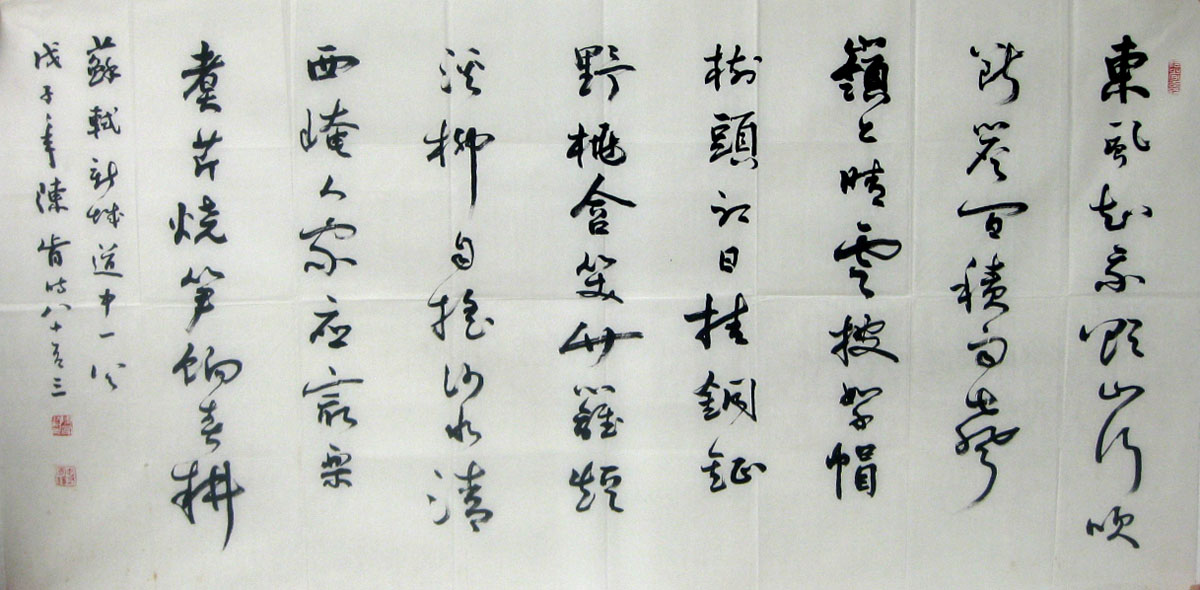 東風知我欲山行吹
斷簷间積雨聲
嶺上晴雲披絮帽
樹頭初日挂銅鉦
野桃含笑竹籬短
溪柳自搖沙水清
西崦人家应最樂
煮芹燒笋餉春耕
蘇軾新城道中一首
戊子年陳肯時八十有三